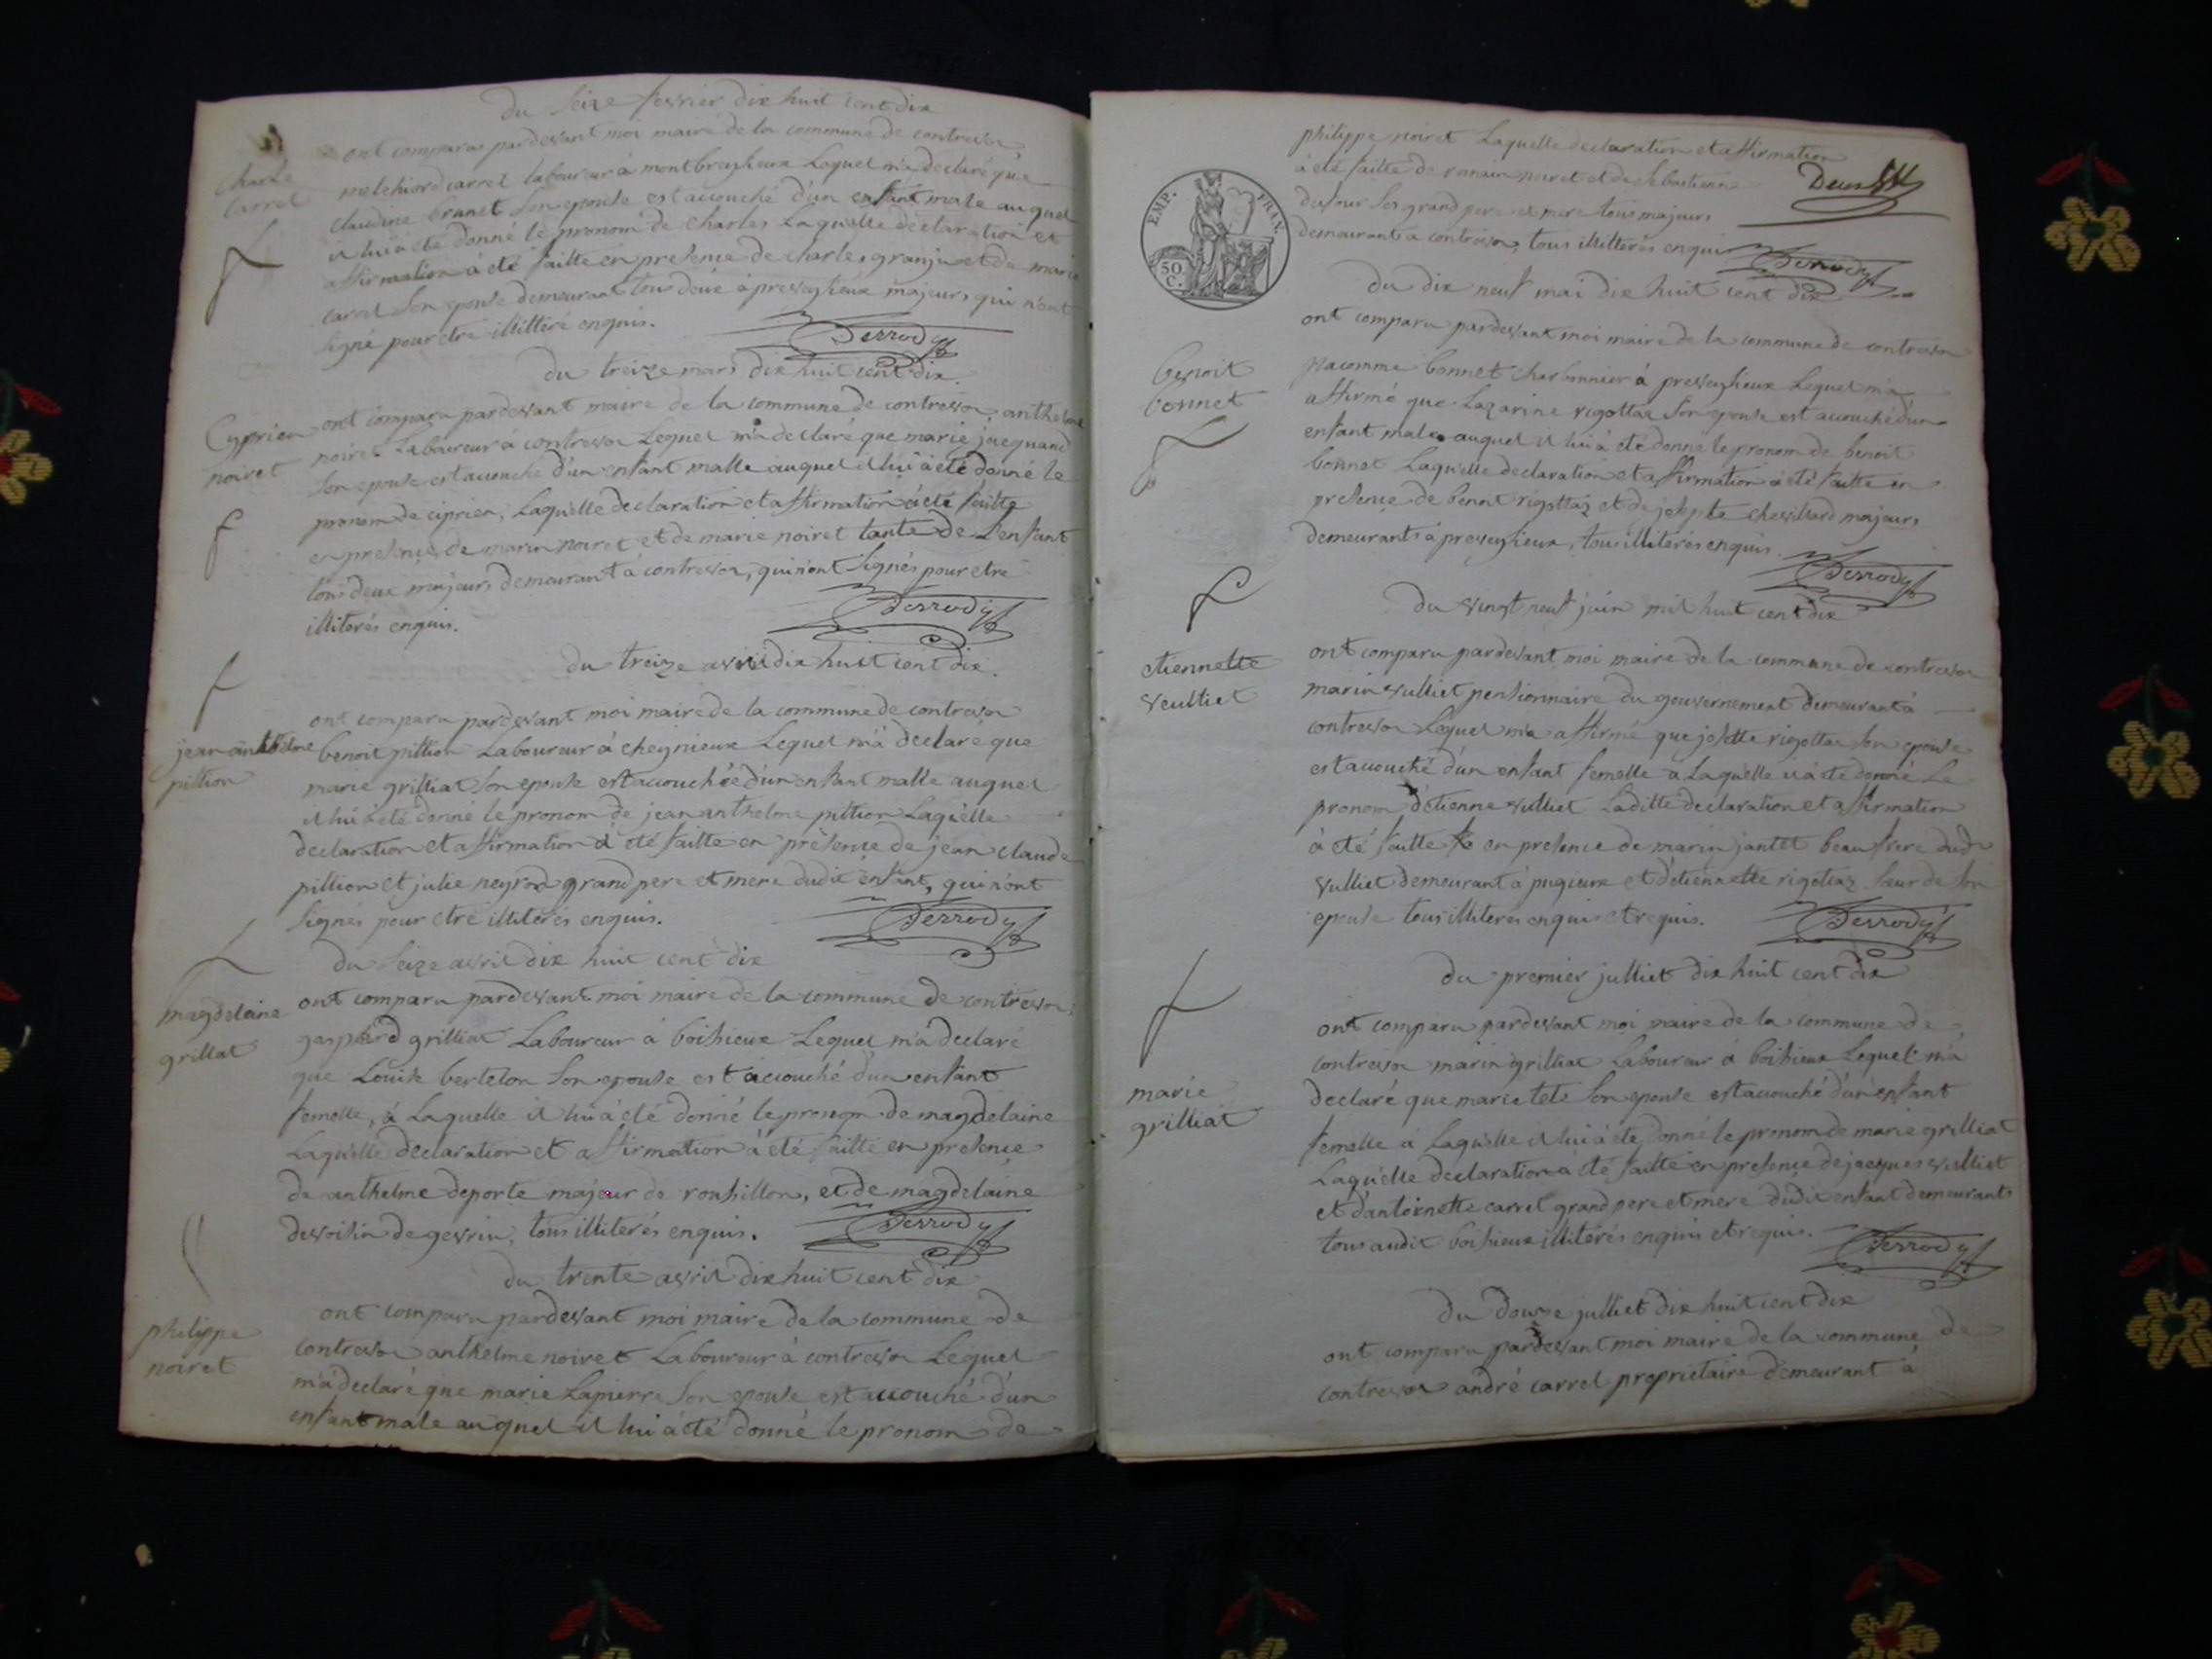 du seize fevrier dix huit cent dix
ont comparu pardevant moi maire de la commune de contrevoz
charle
carrel
melchiord carrel laboureur à montbreyzieux Laquel m'a declaré que
claudine brunet son epouse est accouché d'un enfant male auquel
il lui à eté donné le pronom de charles Laquelle declaration et
affirmation à eté faitte en presence de charle granju et de marie
carrel son epouse demeurant tou deux à preveyzieux majeurs qui n'ont
signé pour etre illitteré enquis.
Perrody
du treize mars dix huit cent dix.
Cyprien
noiret
ont comparu pardevant maire de la commune de contrevoz, anthelme
noiret Laboureur à contrevoz Lequel m'a declaré que marie jacquand
son epouse est accouché d'un enfant malle auquel il lui à eté donné le
pronom de ciprien, Laquelle declaration et affirmation à eté faitte
en presence de marin noiret et de marie noiret tante de L'enfant
tous deux majeurs demeurant à contrevoz, qui n'ont signés pour etre
illiterés enquis.
Perrody
du treize avril dix huit cent dix.
ont comparu pardevant moi maire de la commune de contrevoz
jean anthelme
pittion
benoit pittion Laboureur à cheignieux Lequel m'a declaré que
marie grilliat son epouse est accouchée d'un enfant malle auquel
il lui à eté donné le pronom de jean anthelme pittion Laquelle
declaration et affirmation à eté faitte en presence de jean claude
pittion et julie neyrod grand pere et mere dudit enfant, qui n'ont
signés pour etre illiterés enquis.
Perrody
du seize avril dix huit cent dix
magdelaine
grillat
ont comparu pardevant moi maire de la commune de contrevoz,
gasphard grilliat Laboureur à boissieux Lequel m'a declaré
que Louise bertelon son epouse est accouché d'un enfant
femelle, à Laquelle il lui à eté donné le pronom de magdelaine
Laquelle declaration et affirmation à eté faitte en presence
de anthelme deporte majeur de rousillon, et de magdelaine
devoisin de gevrin, tous illiterés enquis.
Perrody
du trente avril dix huit cent dix
philippe
noiret
ont comparu pardevant moi maire de la commune de
contrevoz anthelme noiret Laboureur à contrevoz Lequel
m'a declaré que marie Lapierre son epouse est accouché d'un
enfant male auquel il lui à eté donné le pronom de
philippe noiret Laquelle declaration et affirmation
à eté faitte de romain noiret et de sebastienne
dufour ses grand pere et mere tous majeurs
demeurants à contrevoz, tous illitterés enquis
Perrody
EMP. FRAN.
50 C.
du dix neuf mai dix huit cent dix
ont comparu pardevant moi maire de la commune de contrevoz
benoit
bonnet
jiacomme bonnet charbonnier à preveyzieux Lequel m'a
affirmé que Lazarine rigottaz son epouse est accouché d'un
enfant male auquel il lui à eté donné le pronom de benoit
bonnet Laquelle declaration et affirmation à eté faitte en
presence de benoit rigottaz et de josepte chevillard majeurs
demeurants à preveyzieux, tous illiterés enquis.
Perrody
du vingt neuf juin mil huit cent dix
etiennette
veulliet
ont comparu pardevant moi maire de la commune de contrevoz
marin vulliet pensionnaire du gouvernement demeurant à
contrevoz Lequel m'a affirmé que josette rigottaz son epouse
est accouché d'un enfant femelle à Laquelle il à eté donné Le
pronom d'etienne vulliet Laditte declaration et affirmation
à eté faitte en presence de marin jantet beau frere dudt
vulliet demeurant à pugieux et d'etiennette rigottaz sœur de son
epouse tous illiterés enquis et requis.
Perrody
du premier julliet dix huit cent dix
marie
grilliat
ont comparu pardevant moi maire de la commune de
contrevoz marin grilliat Laboureur à boissieux Lequel m'a
declaré que marie tete son epouse est accouché d'un enfant
femelle à Laquelle il lui à eté donné le pronom de marie grilliat
Laquelle declaration à eté faitte en presence de jacques vulliet
et d'antoinette carrel grand pere et mere dudit enfant demeurants
tous audit boissieux illitérés enquis et requis.
Perrody
du douze julliet dix huit cent dix
ont comparu pardevant moi maire de la commune de
contrevoz andré carrel proprietaire demeurant à